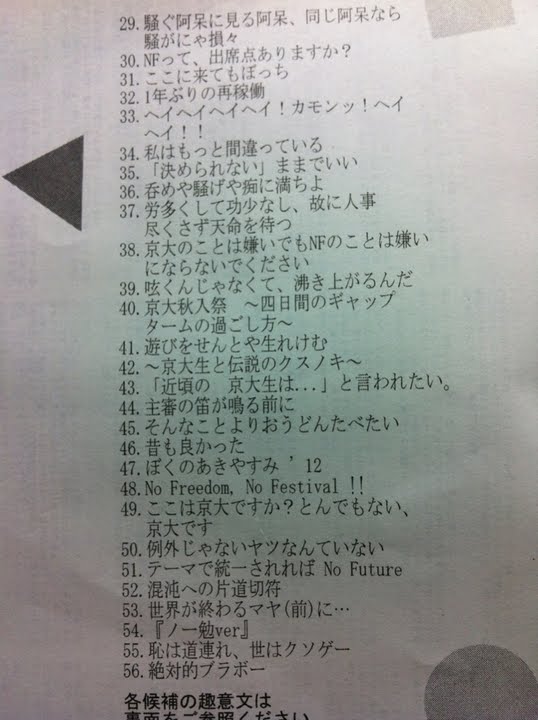 29. 騒ぐ阿呆に見る阿呆、同じ阿呆なら
騒がにゃ損々
30. NFって、出席点ありますか？
31. ここに来てもぼっち
32. 1年ぶりの再稼働
33. ヘイヘイヘイヘイ！カモンッ！ヘイ
ヘイ！！
34. 私はもっと間違っている
35. 「決められない」ままでいい
36. 呑めや騒げや痴に満ちよ
37. 労多くして功少なし、故に人事
尽くさず天命を待つ
38. 京大のことは嫌いでもNFのことは嫌い
にならないでください
39. 呟くんじゃなくて、沸き上がるんだ
40. 京大秋入祭 〜四日間のギャップ
タームの過ごし方〜
41. 遊びをせんとや生れけむ
42. 〜京大生と伝説のクスノキ〜
43. 「近頃の 京大生は...」と言われたい。
44. 主審の笛が鳴る前に
45. そんなことよりおうどんたべたい
46. 昔も良かった
47. ぼくのあきやすみ ’12
48. No Freedom, No Festival !!
49. ここは京大ですか？とんでもない、
京大です
50. 例外じゃないヤツなんていない
51. テーマで統一されれば No Future
52. 混沌への片道切符
53. 世界が終わるマヤ(前)に…
54. 『ノー勉ver』
55. 恥は道連れ、世はクソゲー
56. 絶対的ブラボー
各候補の趣意文は
裏面をご参照ください